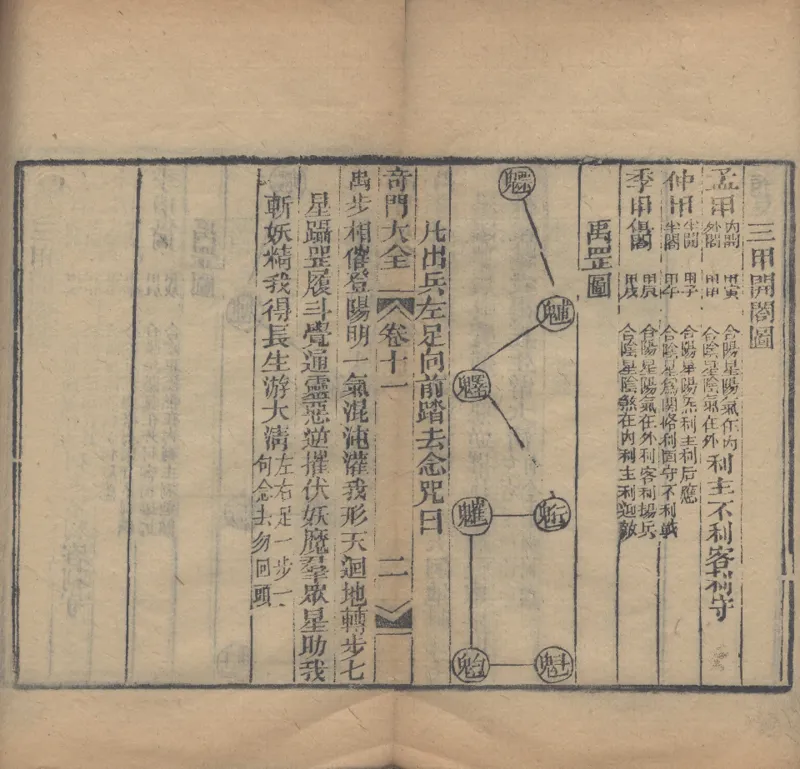 三甲開闔圖
孟甲 內開 外闔 甲寅 甲申 合陽星陽氣在內 合陰星陰氣在外 利主不利客利守
仲甲 半開 半闔 甲子 甲午 合陽星陽炁利主利后應 合陰星為關格利固守不利戰
季甲 甲辰 甲戌 合陽星陽氣在外利客利揚兵 合陰星陰煞在內利主利迎敵
禹罡圖
魒
魓
魁
凡出兵左足向前踏去念咒曰
奇門大全 卷十一 二
禹步相催登陽明一氣混沌灌我形天迴地轉步七
星躡罡履斗覺通靈惡逆摧伏妖魔羣眾星助我
斬妖精我得長生游太清 左右足一步一 句念去勿回頭